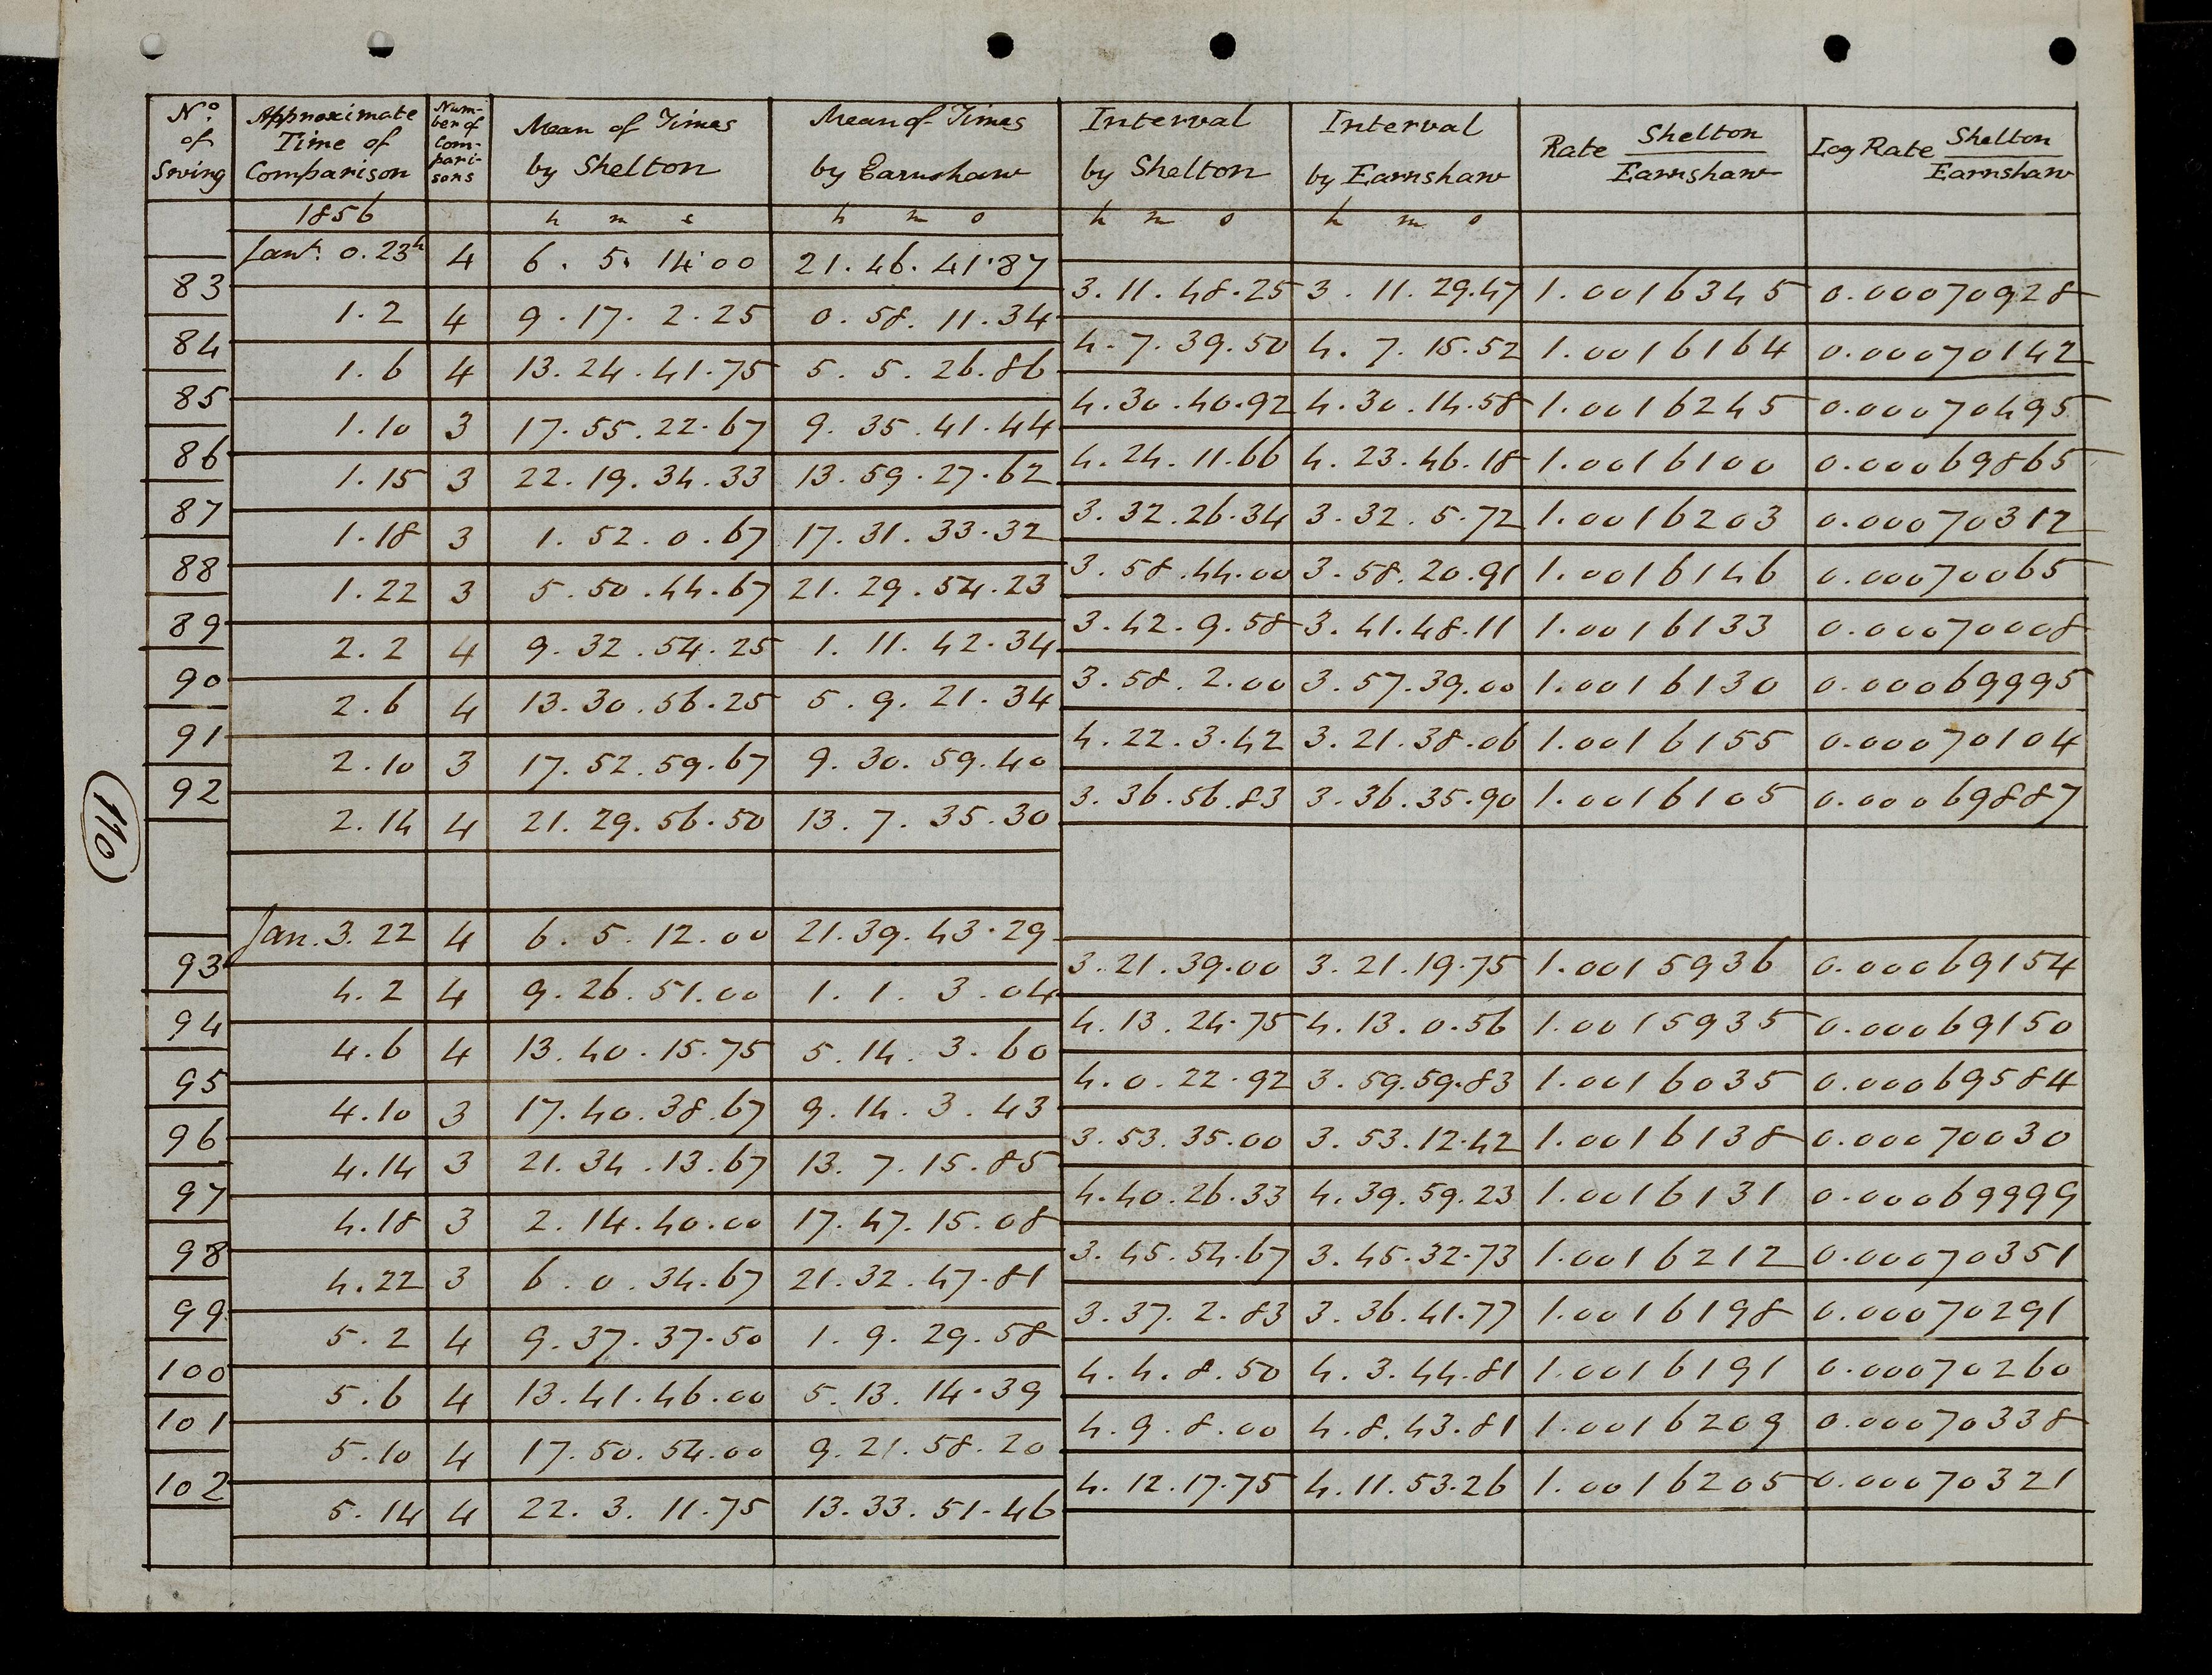 No. of Swing | Approximate Time of Comparison | Number of Comparisons | Mean of Times by Shelton | Mean of Times by Earnshaw | Interval by Shelton | Interval by Earnshaw | Rate Shelton/Earnshaw | Log Rate Shelton/Earnshaw
1856 | h m s | h m s | h m s | h m s
Jany. 0.23h | 4 | 6. 5. 14.00 | 21.46.41.87
83 | 3.11.48.25 | 3.11.29.47 | 1.0016345 | 0.00070928
1.2 | 4 | 9.17.2.25 | 0.58.11.34
84 | 4.7.39.50 | 4.7.15.52 | 1.0016164 | 0.00070142
1.6 | 4 | 13.24.41.75 | 5.5.26.86
85 | 4.30.40.92 | 4.30.14.58 | 1.0016245 | 0.00070495
1.10 | 3 | 17.55.22.67 | 9.35.41.44
86 | 4.24.11.66 | 4.23.46.18 | 1.0016100 | 0.00069865
1.15 | 3 | 22.19.34.33 | 13.59.27.62
87 | 3.32.26.34 | 3.32.5.72 | 1.0016203 | 0.00070312
1.18 | 3 | 1.52.0.67 | 17.31.33.32
88 | 3.58.44.00 | 3.58.20.91 | 1.0016146 | 0.00070065
1.22 | 3 | 5.50.44.67 | 21.29.54.23
89 | 3.42.9.58 | 3.41.48.11 | 1.0016133 | 0.00070008
2.2 | 4 | 9.32.54.25 | 1.11.42.34
90 | 3.58.2.00 | 3.57.39.00 | 1.0016130 | 0.00069995
2.6 | 4 | 13.30.56.25 | 5.9.21.34
91 | 4.22.3.42 | 3.21.38.06 | 1.0016155 | 0.00070104
2.10 | 3 | 17.52.59.67 | 9.30.59.40
92 | 3.36.56.83 | 3.36.35.90 | 1.0016105 | 0.00069887
2.14 | 4 | 21.29.56.50 | 13.7.35.30
110
Jan. 3.22 | 4 | 6.5.12.00 | 21.39.43.29
93 | 3.21.39.00 | 3.21.19.75 | 1.0015936 | 0.00069154
4.2 | 4 | 9.26.51.00 | 1.1.3.04
94 | 4.13.24.75 | 4.13.0.56 | 1.0015935 | 0.00069150
4.6 | 4 | 13.40.15.75 | 5.14.3.60
95 | 4.0.22.92 | 3.59.59.83 | 1.0016035 | 0.00069584
4.10 | 3 | 17.40.38.67 | 9.14.3.43
96 | 3.53.35.00 | 3.53.12.42 | 1.0016138 | 0.00070030
4.14 | 3 | 21.34.13.67 | 13.7.15.85
97 | 4.40.26.33 | 4.39.59.23 | 1.0016131 | 0.00069999
4.18 | 3 | 2.14.40.00 | 17.47.15.08
98 | 3.45.54.67 | 3.45.32.73 | 1.0016212 | 0.00070351
4.22 | 3 | 6.0.34.67 | 21.32.47.81
99 | 3.37.2.83 | 3.36.41.77 | 1.0016198 | 0.00070291
5.2 | 4 | 9.37.37.50 | 1.9.29.58
100 | 4.4.8.50 | 4.3.44.81 | 1.0016191 | 0.00070260
5.6 | 4 | 13.41.46.00 | 5.13.14.39
101 | 4.9.8.00 | 4.8.43.81 | 1.0016209 | 0.00070338
5.10 | 4 | 17.50.54.00 | 9.21.58.20
102 | 4.12.17.75 | 4.11.53.26 | 1.0016205 | 0.00070321
5.14 | 4 | 22.3.11.75 | 13.33.51.46